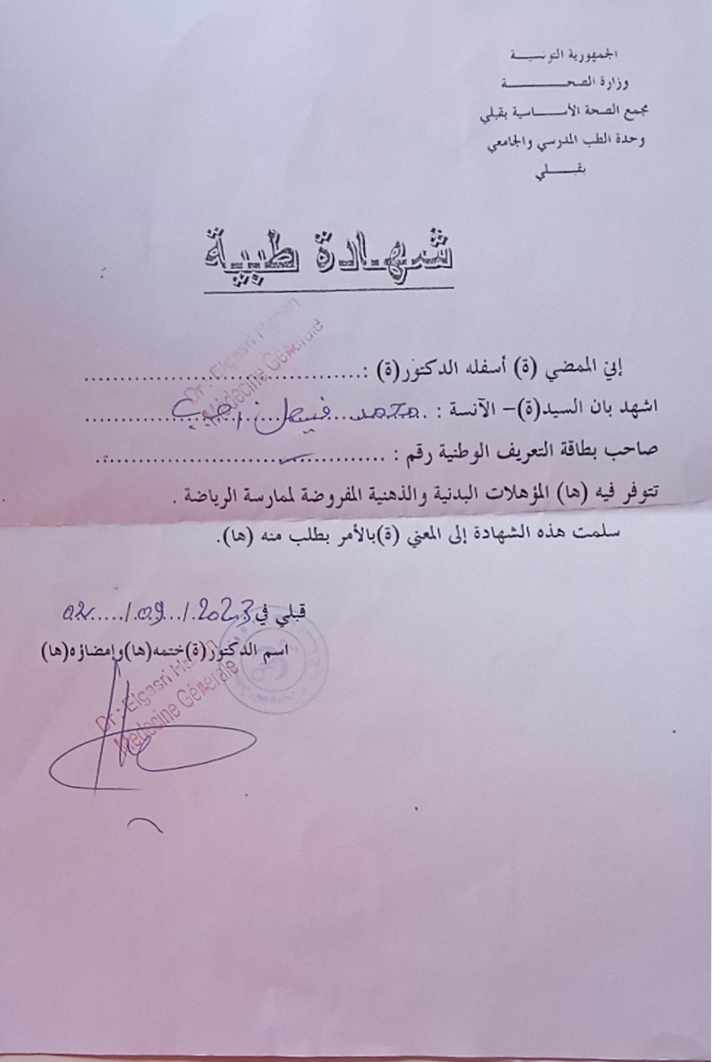 الجمهورية التونسية
وزارة الصحة
مجمع الصحة الأساسية بقبلي
وحدة الطب المدرسي والجامعي
بقبلي
شهادة طبية
إني الممضي (ة) أسفله الدكتور(ة) :
Dr : Elgasri
Médecine Générale
اشهد بان السيد(ة)– الآنسة : محمد فيصل
صاحب بطاقة التعريف الوطنية رقم :
تتوفر فيه (ها) المؤهلات البدنية والذهنية المفروضة لممارسة الرياضة .
سلمت هذه الشهادة إلى المعني (ة)بالأمر بطلب منه (ها).
قبلي في 02/09/2023
اسم الدكتور(ة)ختمه(ها)وإمضازه(ها)
Dr : Elgasri
Médecine Générale